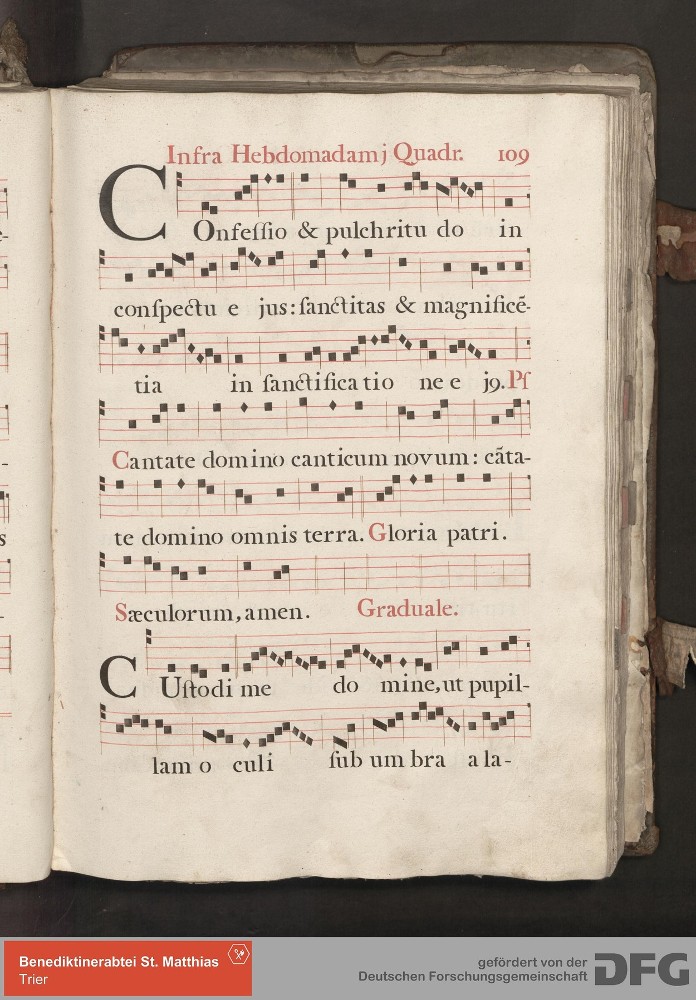 Infra Hebdomadam j Quadr. 109
COnfeſſio & pulchritu do in
conſpectu e jus: ſanctitas & magnificē-
tia in ſanctifica tio ne e j9. Pſ
Cantate domino canticum novum: cāta-
te domino omnis terra. Gloria patri.
Sæculorum, amen. Graduale.
CUſtodi me do mine, ut pupil-
lam o culi ſub um bra a la-
Benediktinerabtei St. Matthias
Trier
gefördert von der
Deutschen Forschungsgemeinschaft
DFG